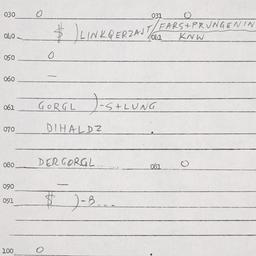 030 O 031 O
040 $ )LINKQERZAJT/FARS+PRUNGENIN
041 KNW
050 O
060 —
061 GORGL )-S+LUNG
070 DIHALDZ
080 DERGORGL 081 O
090 —
091 $ )-B...
100 O